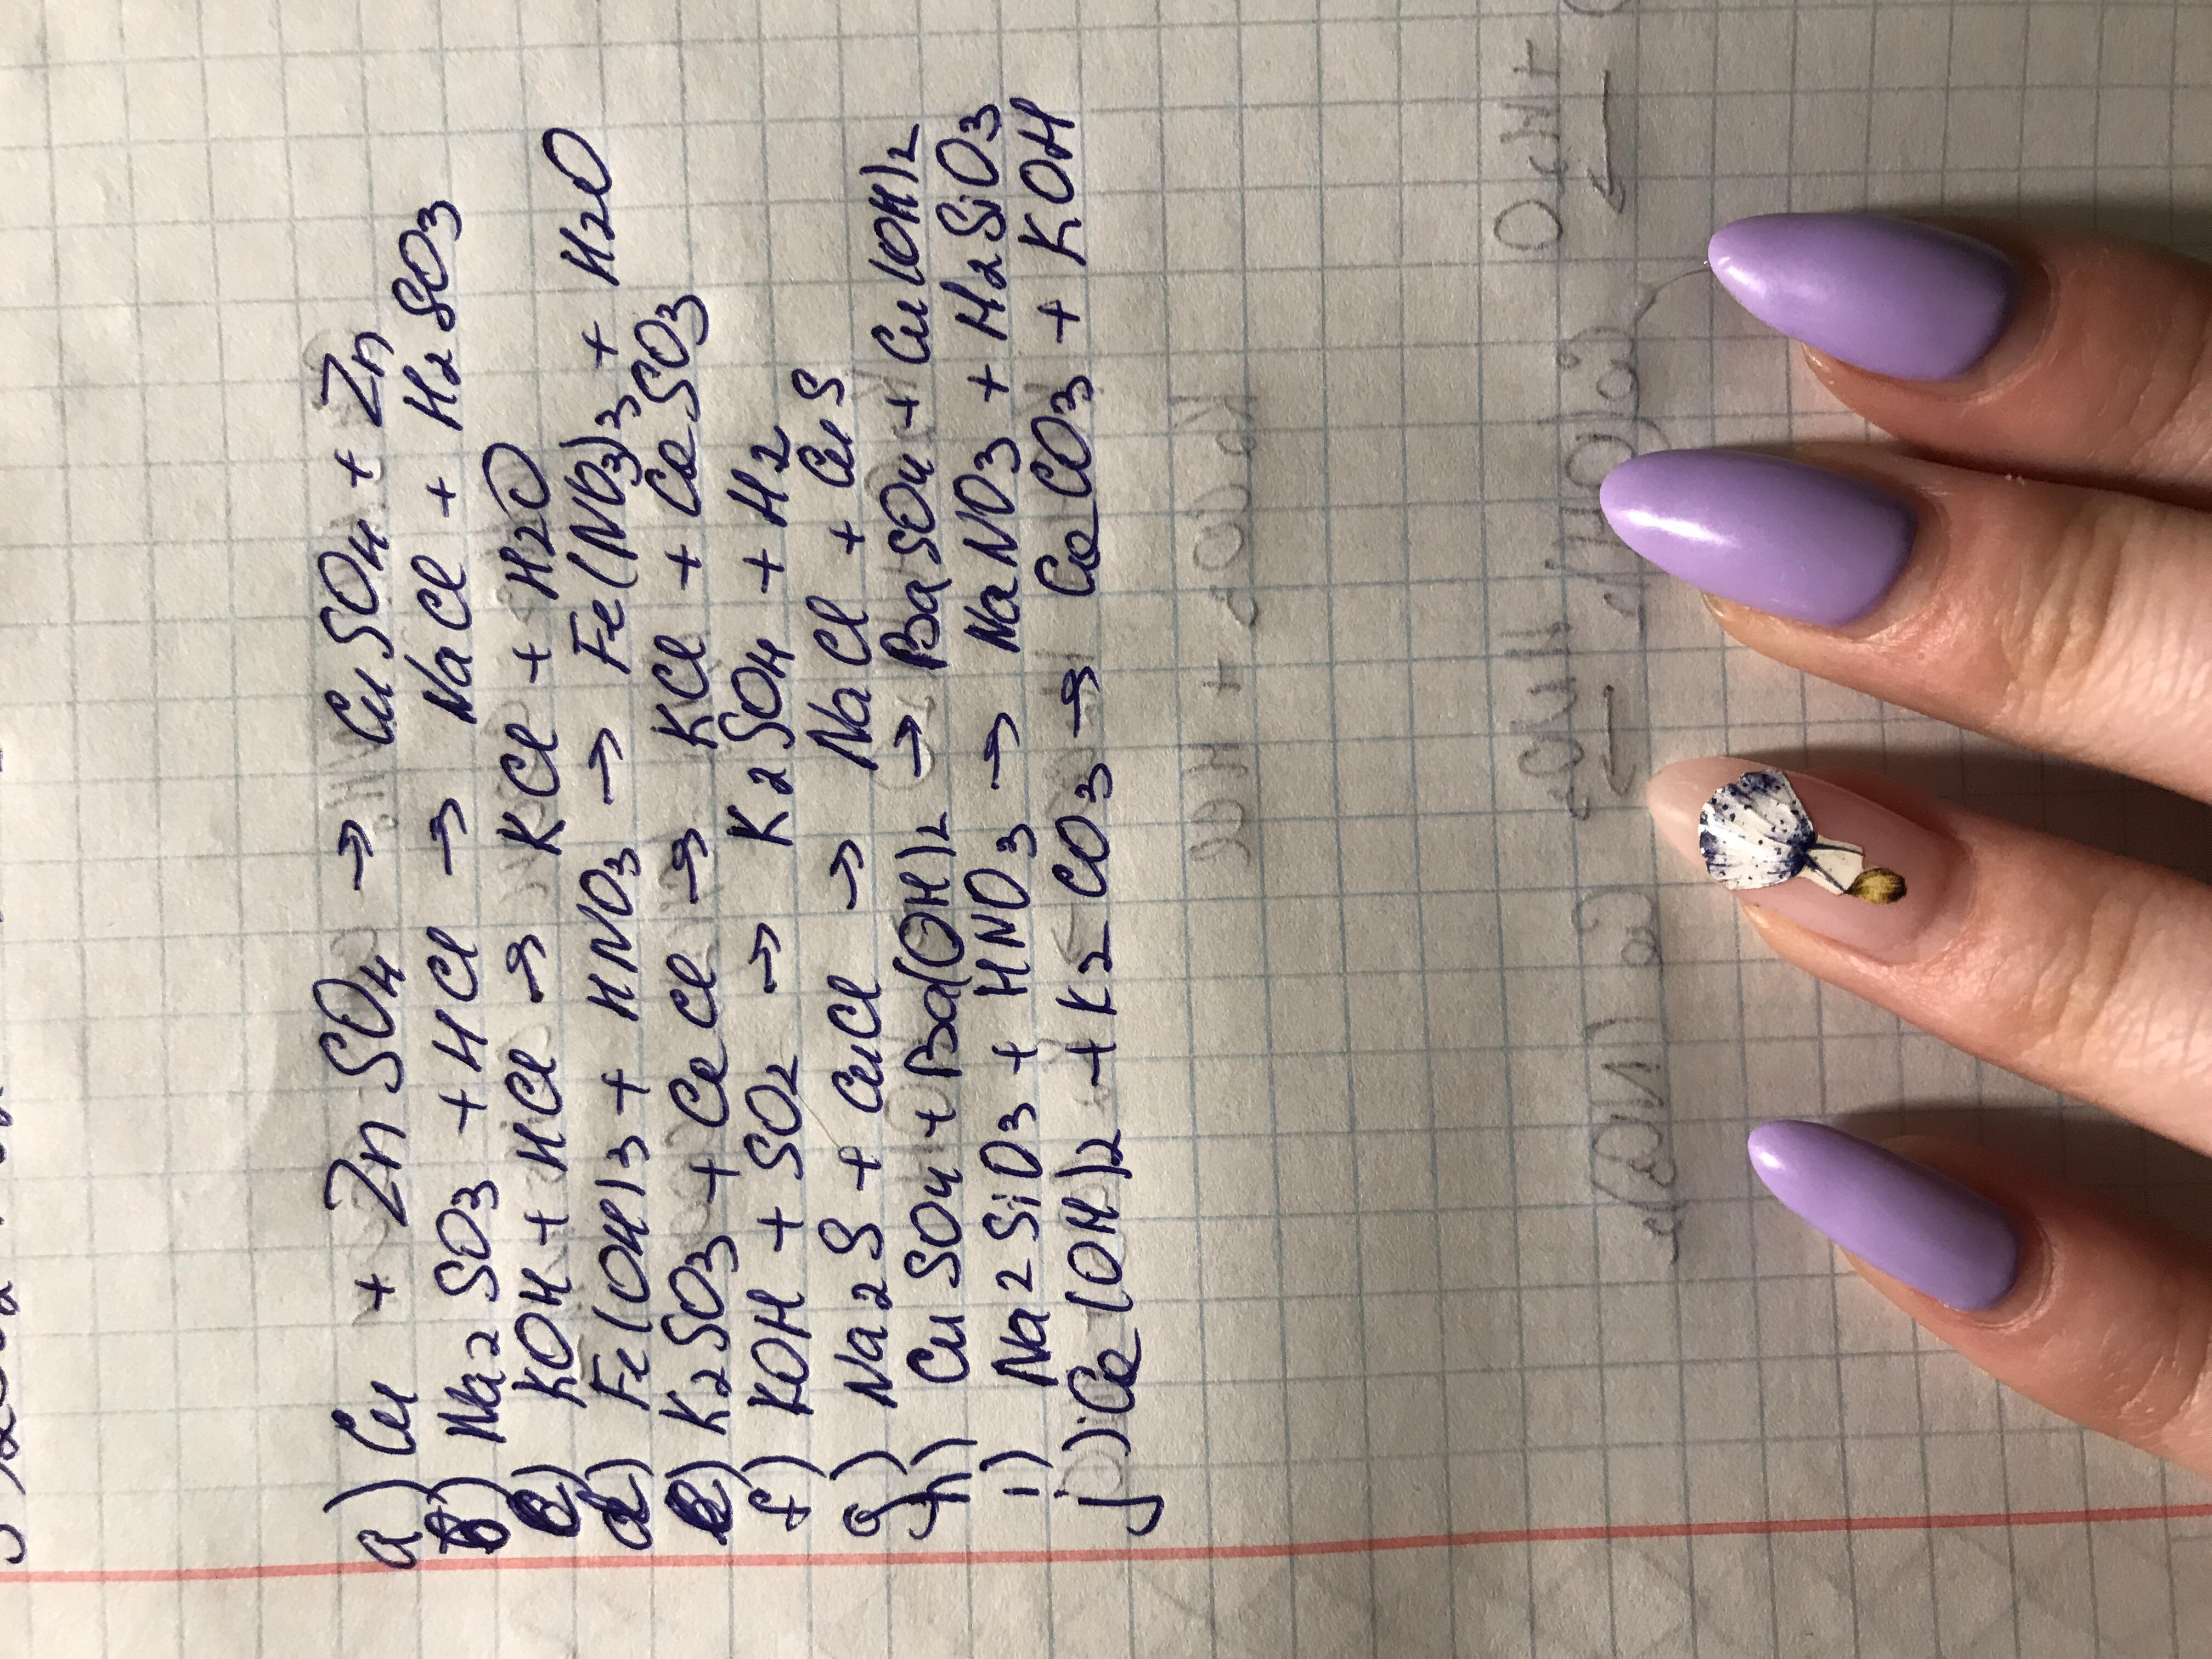 a) Cu + ZnSO4 → CuSO4 + Zn
b) Na2SO3 + HCl → NaCl + H2SO3
c) KOH + HCl → KCl + H2O
d) Fe(OH)3 + HNO3 → Fe(NO3)3 + H2O
e) K2SO3 + CaCl → KCl + CaSO3
f) KOH + SO2 → K2SO4 + H2
g) Na2S + CuCl → NaCl + CuS
h) CuSO4 + Ba(OH)2 → BaSO4 + Cu(OH)2
i) Na2SiO3 + HNO3 → NaNO3 + H2SiO3
j) Ca(OH)2 + K2CO3 → CaCO3 + KOH